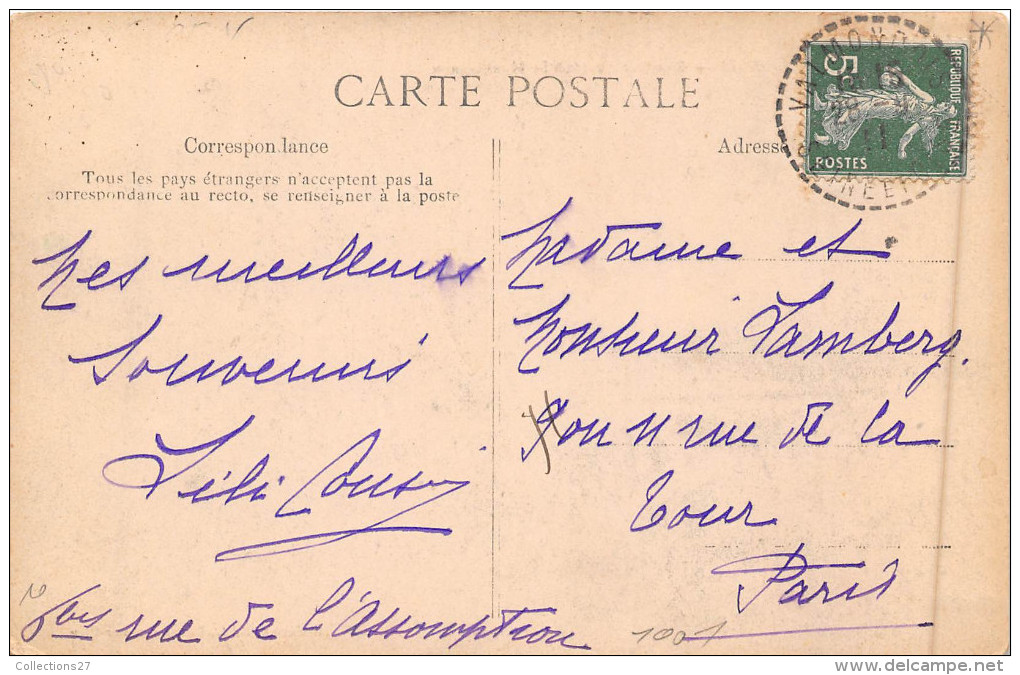 CARTE POSTALE
Correspondance
Tous les pays étrangers n'acceptent pas la
correspondance au recto, se renseigner à la poste
Adresse
5c
REPUBLIQUE FRANÇAISE
POSTES
VALMONDOIS
11
Mes meilleurs
souvenirs
6 bis rue de l'Assomption
Madame et
Monsieur Lamberg.
9 ou 11 rue de la
Tour
Paris
1007
Collections27
www.delcampe.net